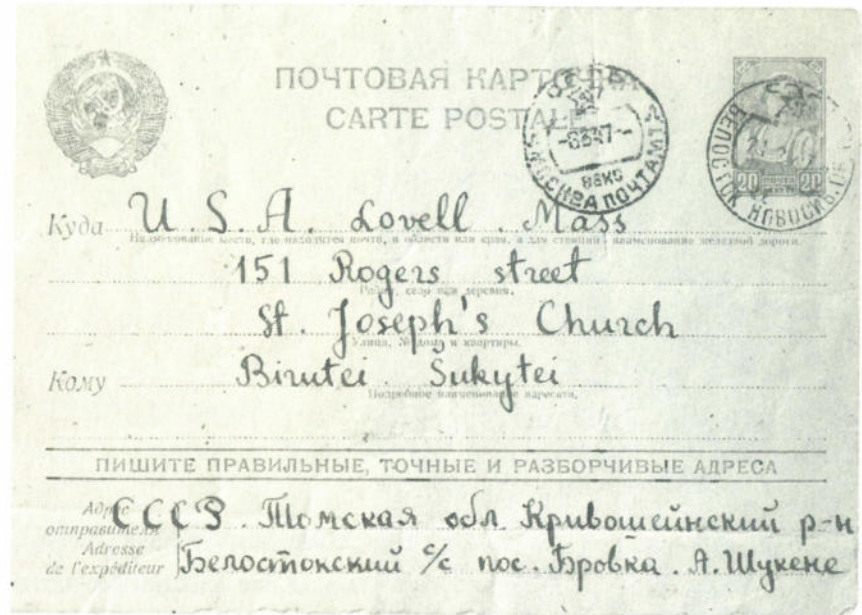 ПОЧТОВАЯ КАРТОЧКА
CARTE POSTALE
МОСКВА ПОЧТАМТ
БЕЛОСТОК НОВОСИБ.
20 ПОЧТА 20
Куда U.S.A. Lovell. Mass
Наименование места, где находится почта, и области или края, а для станции - наименование железной дороги.
151 Rogers street
Район, село или деревня.
St. Joseph's Church
Улица, № дома и квартиры.
Кому Birutei Šukytei
Подробное наименование адресата.
ПИШИТЕ ПРАВИЛЬНЫЕ, ТОЧНЫЕ И РАЗБОРЧИВЫЕ АДРЕСА
Адрес отправителя
Adresse de l'expéditeur
СССР. Томская обл Кривошеинский р-н
Белостокский с/с пос. Бровка. А. Шукене